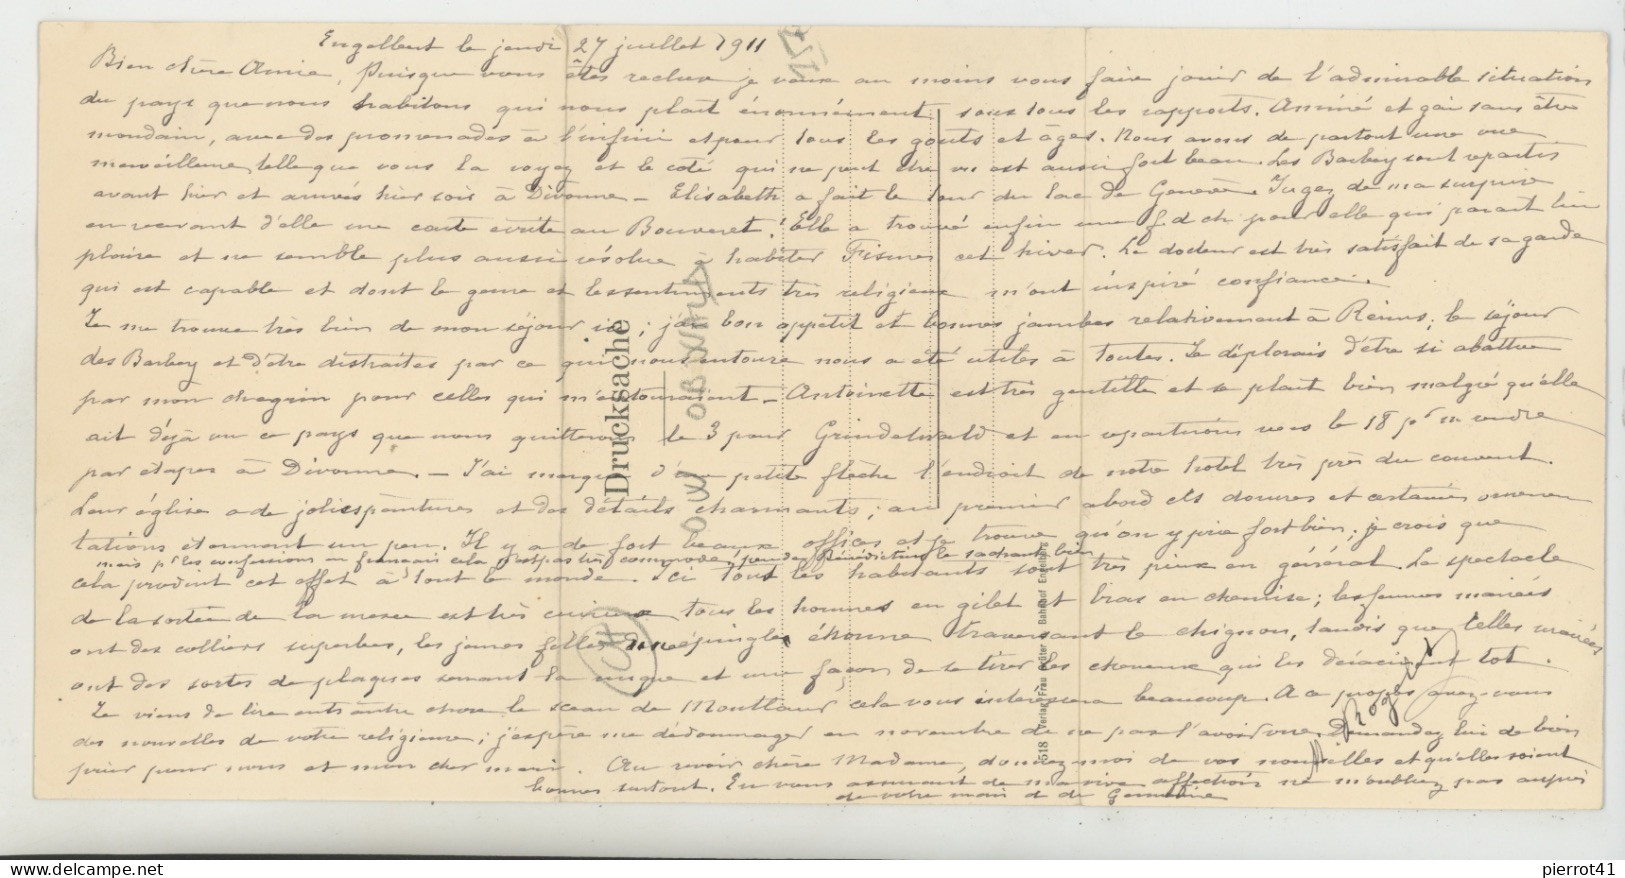 Engelbert le jeudi 27 juillet 1911
Bien chère Amie, Puisque vous êtes recluse je veux au moins vous faire jouir de l'admirable situation
du pays que nous habitons qui nous plaît énormément sous tous les rapports. Animé et gai sans être
mondain, avec des promenades à l'infini et pour tous les goûts et âges. Nous avons de partout une vue
merveilleuse telle que vous la voyez et le côté qui ne peut être vu est aussi fort beau. Les Barbey sont repartis
avant hier et arrivés hier soir à Divonne - Elisabeth a fait le tour du lac de Genève. Jugez de ma surprise
en recevant d'elle une carte écrite au Bouveret! Elle a trouvé enfin une f d ch pour elle qui paraît lui
plaire et ne semble plus aussi résolue à habiter Fismes cet hiver. Le docteur est très satisfait de sa garde
qui est capable et dont le genre et les sentiments très religieux m'ont inspiré confiance.
Je me trouve très bien de mon séjour ici; j'ai bon appétit et bonnes jambes relativement à Reims; le séjour
des Barbey et d'être distraites par ce qui nous entoure nous a été utiles à toutes. Je déplorais d'être si abattue
par mon chagrin pour celles qui m'entouraient - Antoinette est très gentille et se plaît bien malgré qu'elle
ait déjà vu ce pays que nous quitterons le 3 pour Grindelwald et en repartirons vers le 18 pr m rendre
par étapes à Divonne. - J'ai marqué d'une petite flèche l'endroit de notre hôtel très près du couvent.
Leur église a de jolies peintures et des détails charmants; au premier abord ces dorures et certaines ornemen
tations étonnent un peu. Il y a de fort beaux offices et je trouve qu'on y prie fort bien; je crois que
mais pr les confessions en français cela n'est pas très commode, peu de Bénédictins le sachant bien
cela produit cet effet à tout le monde. Ici tous les habitants sont très pieux en général. Le spectacle
de la sortie de la messe est très curieux tous les hommes en gilet et bras en chemise; les femmes mariées
ont des colliers superbes, les jeunes filles une épingle énorme traversant le chignon, tandis que celles mariées
ont des sortes de plaques tenant la nuque et une façon de se tirer les cheveux qui les déracinent tôt.
Je viens de lire entr'autre chose le sceau de Montlaur, cela vous intéressera beaucoup. A ce propos avez-vous
des nouvelles de votre religieuse; j'espère me dédommager en novembre de ne pas l'avoir vue. Demandez lui de bien
prier pour nous et mon cher mari. Au revoir chère Madame, donnez-moi de vos nouvelles et qu'elles soient
bonnes surtout. En vous assurant de ma vive affection ne m'oubliez pas auprès
de votre mari
Drucksache
518 Verlag Frau Bahnhof Engelberg
OB WIND
pierrot41